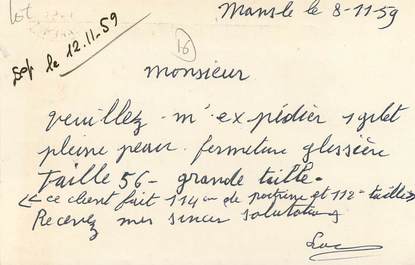 Lot
Mansle le 8-11-59
Exp le 12.11-59
16
Monsieur
veuillez m'expédier 1 gilet
pleine peau fermeture glissière
taille 56 - grande taille -
<< ce client fait 114 cm de poitrine et 112 - taille >>
Recevez mes sincer salutations